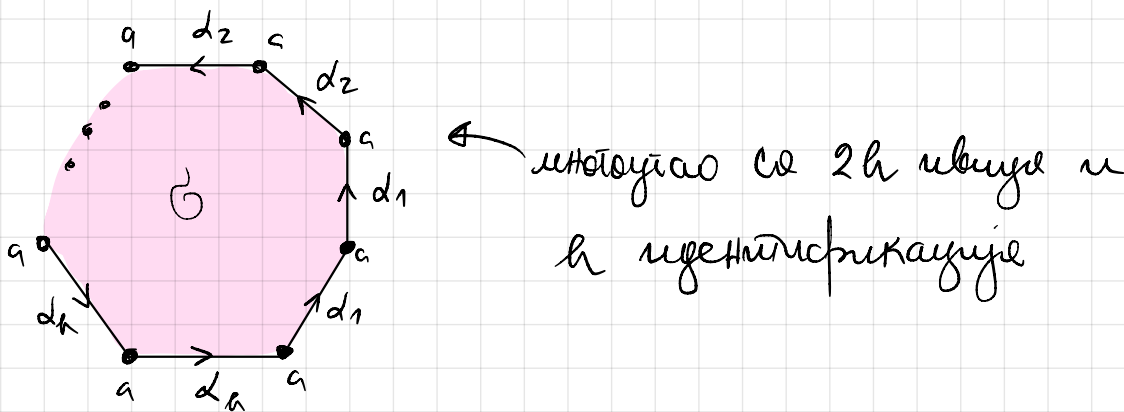 a α₂ a
α₂
a
α₁
σ
a
a
αₕ
α₁
a αₕ a
многоугао са 2h ивица и
h идентификација